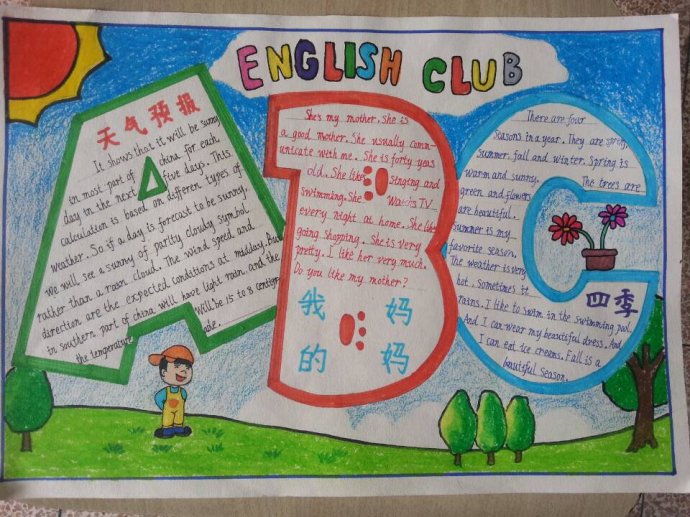 ENGLISH CLUB
天气预报
It shows that it will be sunny
in most part of china for each
day in the next five days. This
calculation is based on different types of
weather. So if a day is forecast to be sunny,
we will see a sunny of partly cloudy symbol
rather than a rain cloud. The wind speed and
direction are the expected conditions at midday. But
in southern part of china will have light rain. and the
the temperature will be 15 to 8
She's my mother. she is
a good mother. She usually comm-
unicate with me. She is forty yeas
old. She like singing and
swimming. She TV
every night at home. She like
going shopping. She is very
pretty. I like her very much.
Do you like my mother?
我 妈
的 妈
There are four
seasons in a year. They are
summer. fall and winter. Spring is
warm and sunny. The trees are
green and flowers
are beautiful.
Summer is my
favorite season.
The weather is very
hot. Sometimes it
rains. I like to swim in the swimming pool.
And I can wear my beautiful dress. And
I can eat ice creams. Fall is a
beautiful season.
四季